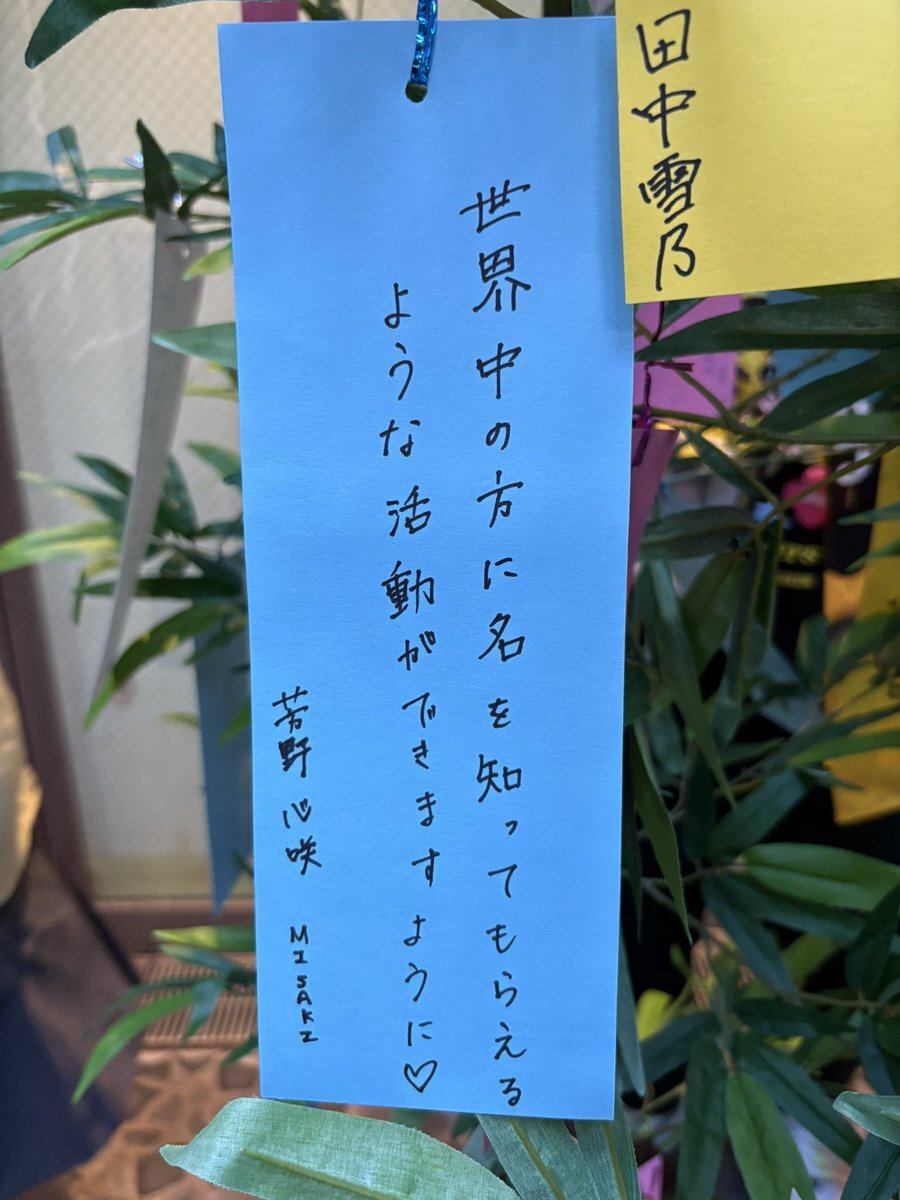 田中雪乃
世界中の方に名を知ってもらえる
ような活動ができますように♡
芳野心咲 MISAKI